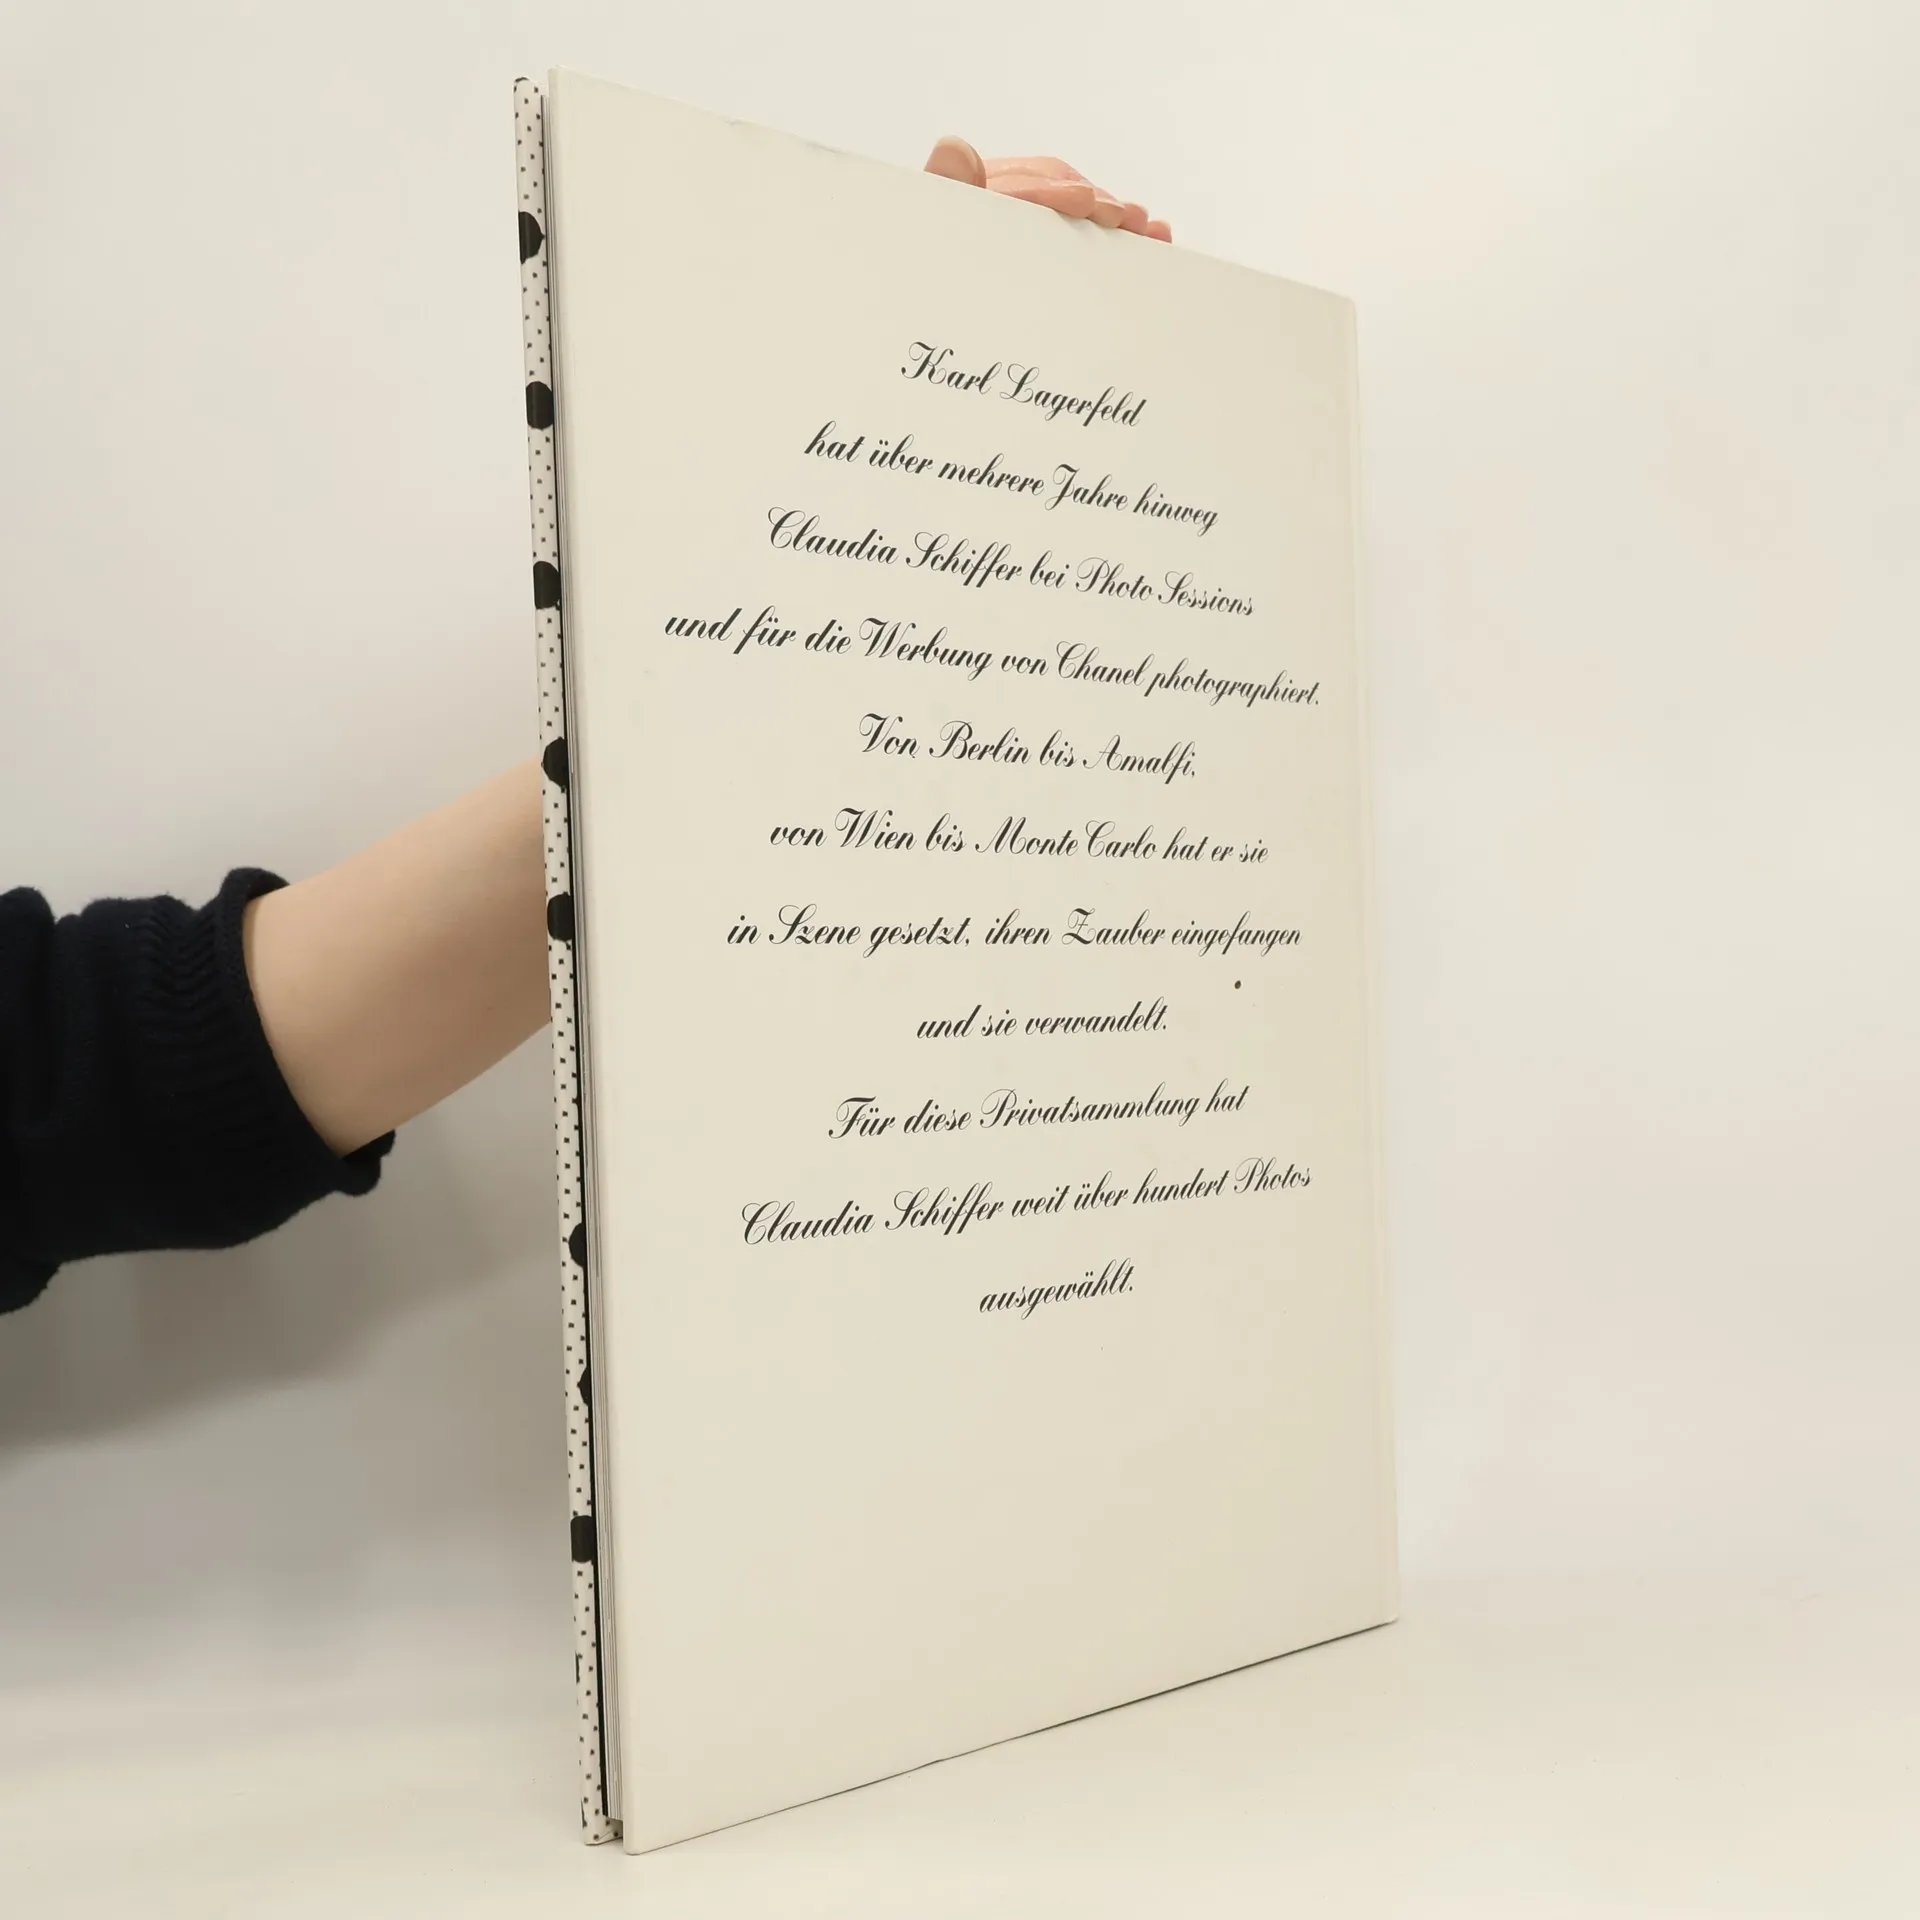 Karl Lagerfeld
hat über mehrere Jahre hinweg
Claudia Schiffer bei Photo Sessions
und für die Werbung von Chanel photographiert.
Von Berlin bis Amalfi,
von Wien bis Monte Carlo hat er sie
in Szene gesetzt, ihren Zauber eingefangen
und sie verwandelt.
Für diese Privatsammlung hat
Claudia Schiffer weit über hundert Photos
ausgewählt.